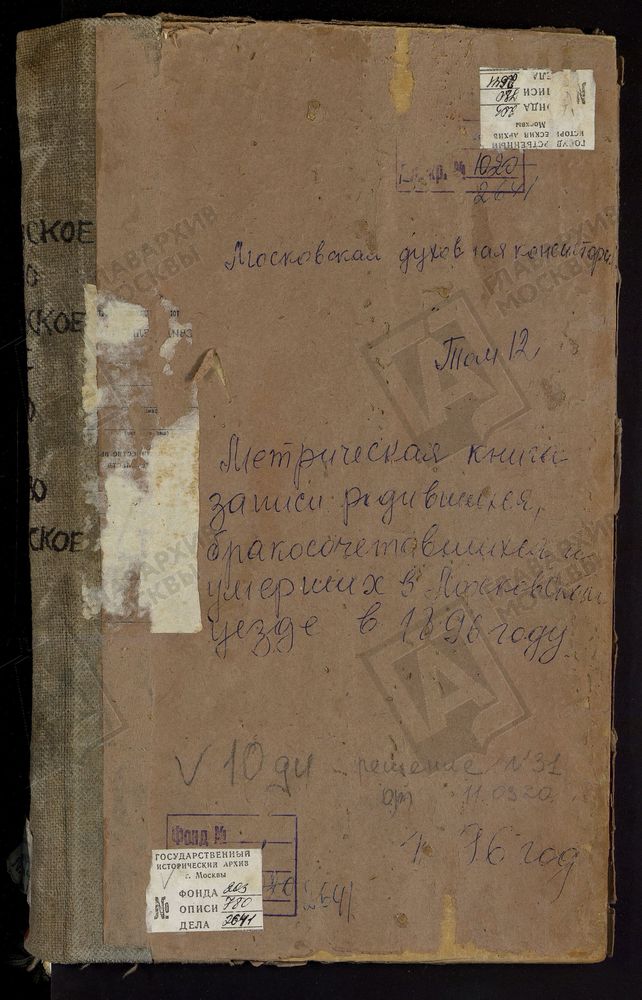 ДЕЛА 2641
ОПИСИ 780
ФОНДА 203
г. Москвы
ИСТОРИЧЕСКИЙ АРХИВ
ГОСУДАРСТВЕННЫЙ
№ 1020
2641
Московская духовная консистори
Том 12
СКОЕ
СКОЕ
СКОЕ
Метрическая книга
записи родившихся,
бракосочетавшихся и
умерших в Московском
уезде в 1896 году
V 10 ди решение № 31
от 11.03.20
96 год
Фонд №
ГОСУДАРСТВЕННЫЙ
ИСТОРИЧЕСКИЙ АРХИВ
г. Москвы
№ ФОНДА 203
ОПИСИ 780
ДЕЛА 2641
2641
ГЛАВАРХИВ
МОСКВЫ